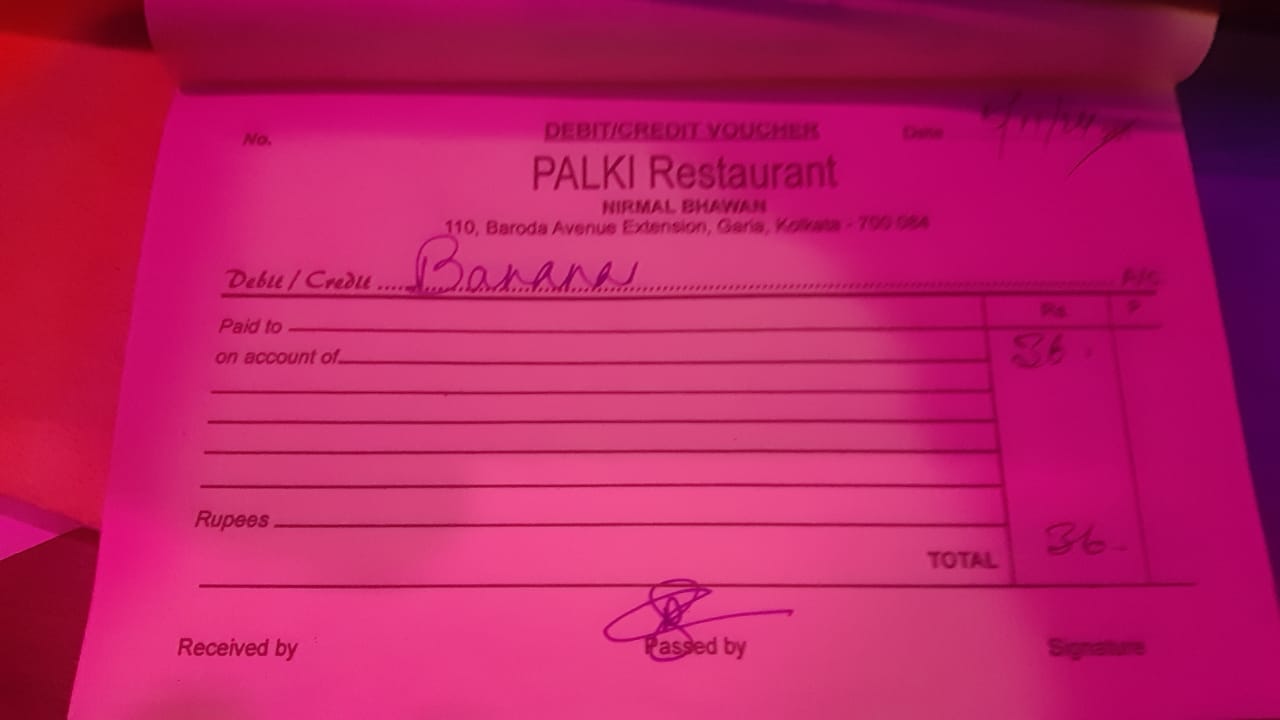 No. DEBIT/CREDIT VOUCHER Date
PALKI Restaurant
NIRMAL BHAWAN
110, Baroda Avenue Extension, Garia, Kolkata - 700 084
Debit / Credit ..... Banana ..... A/c.
Rs. P.
Paid to
36.
on account of
Rupees
36-
TOTAL
Received by Passed by Signature